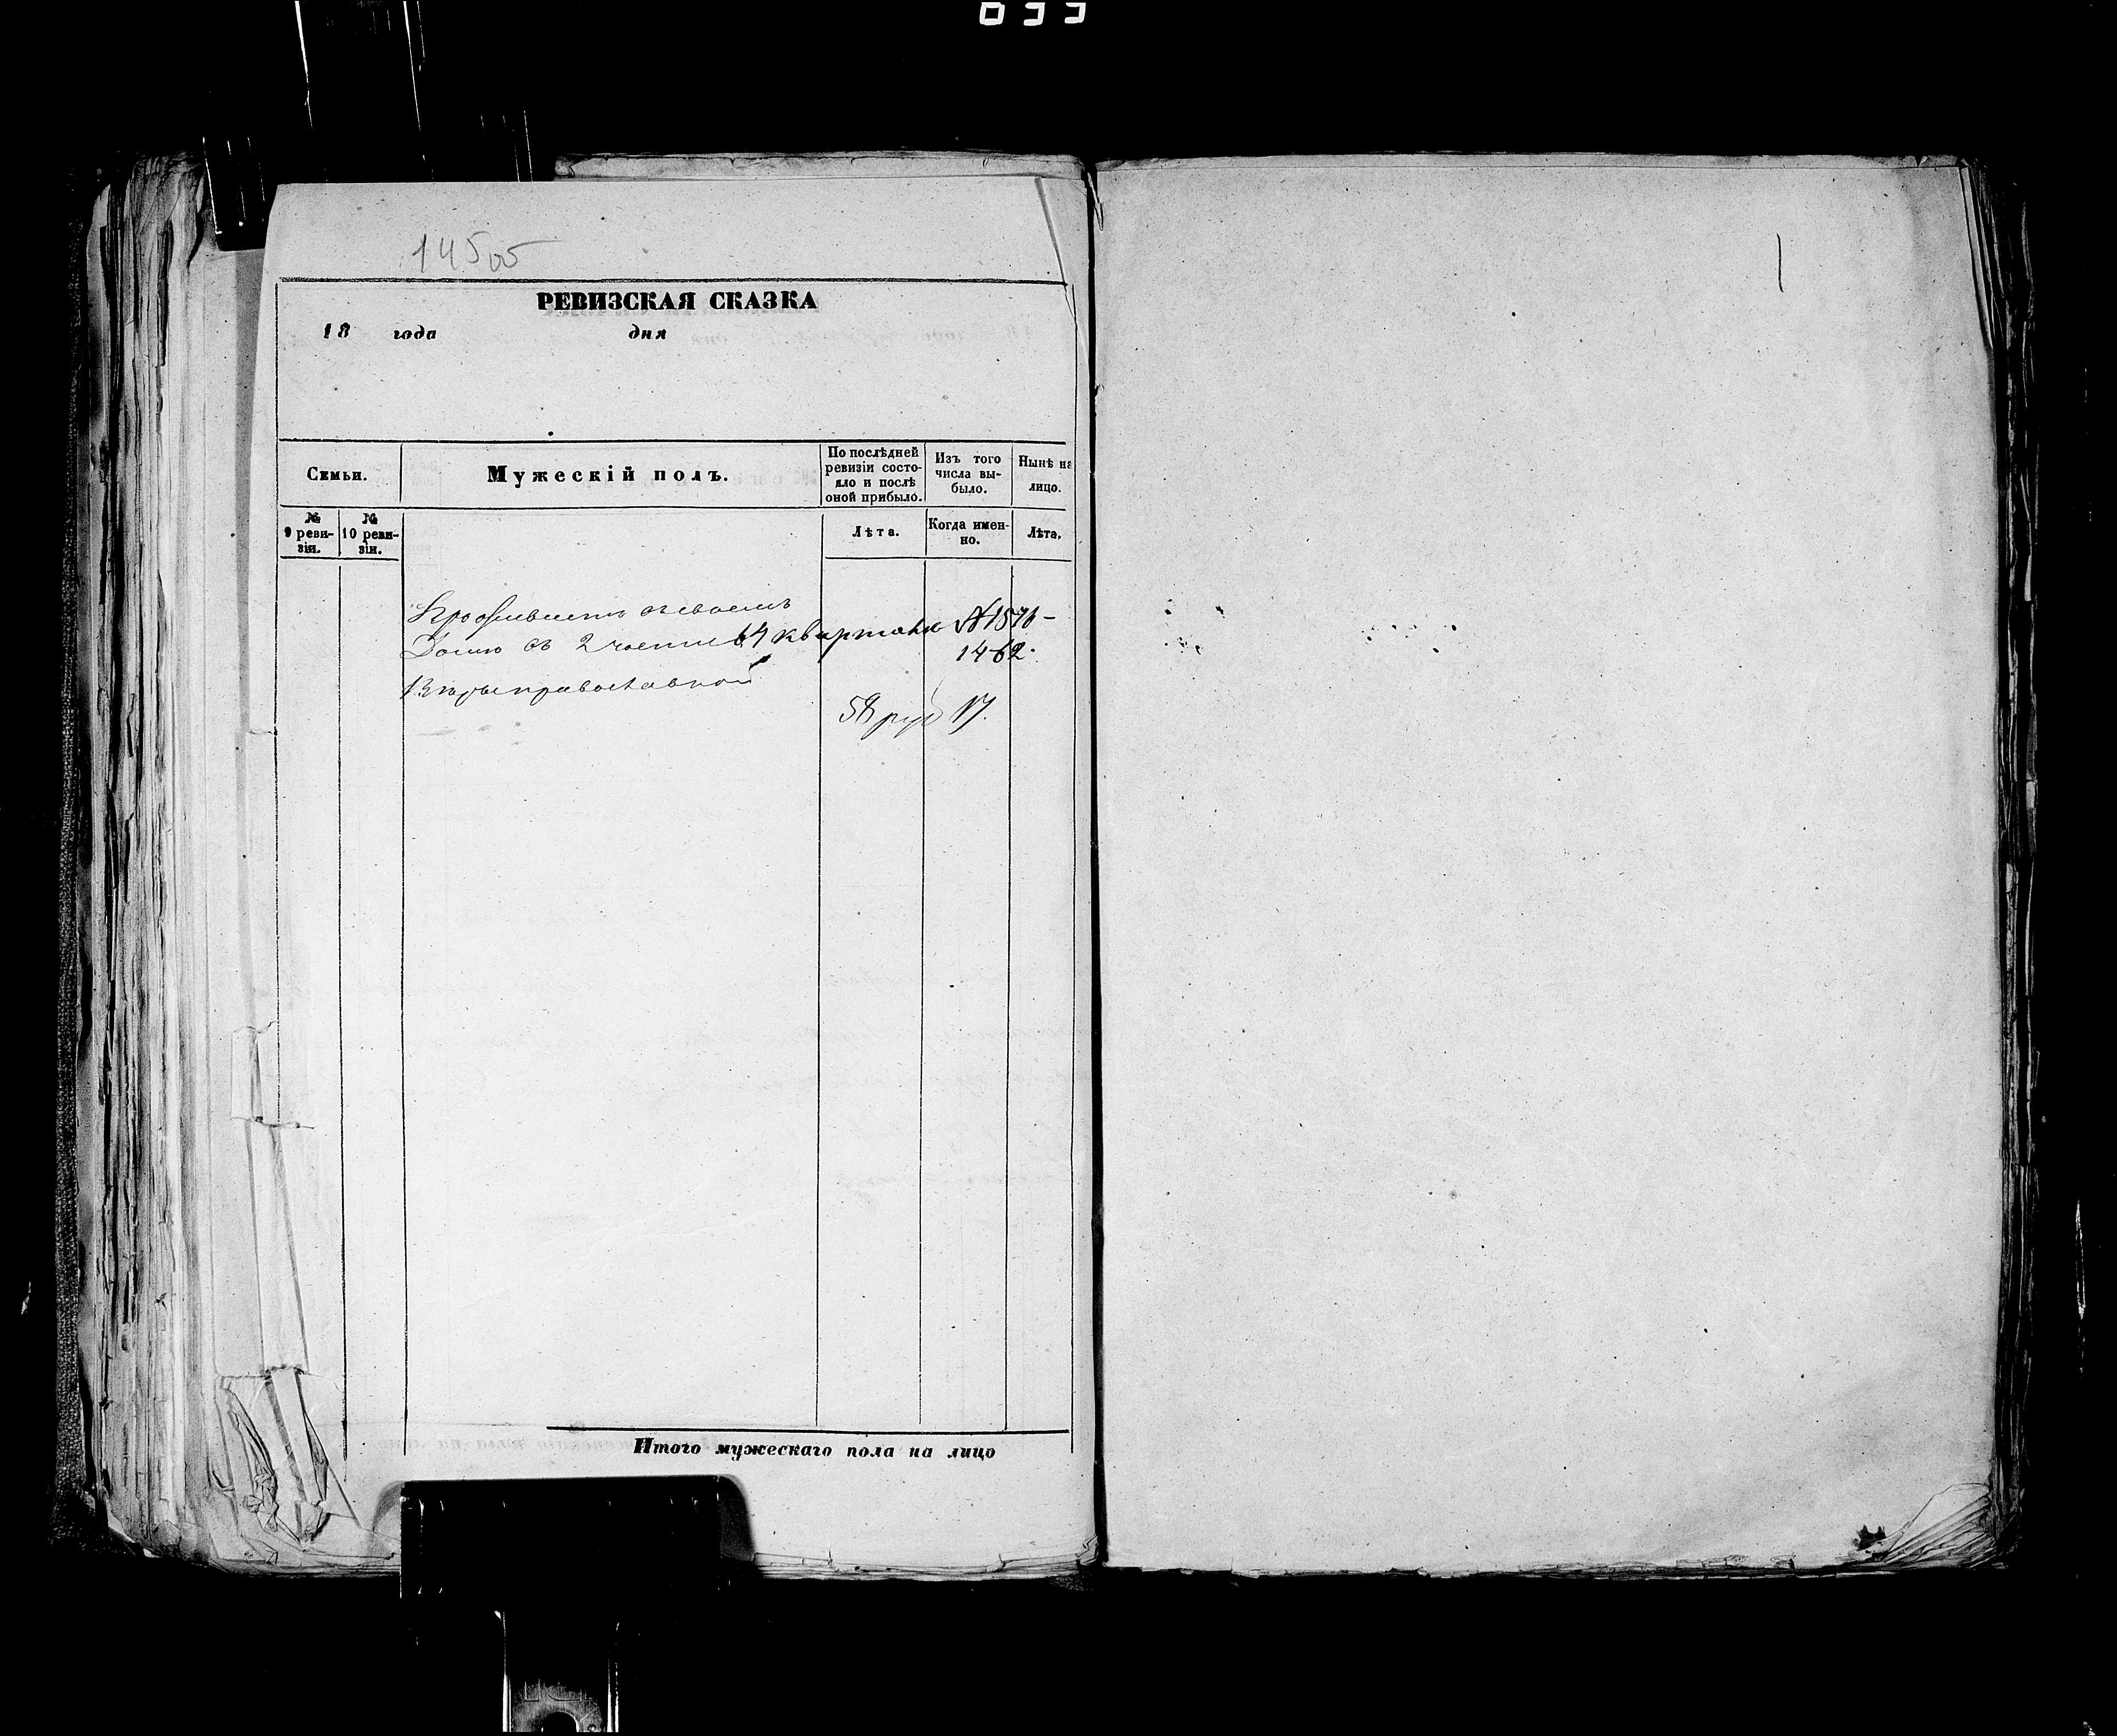 033
145
РЕВИЗСКАЯ СКАЗКА
18 года дня
Семьи.
Мужескій полъ.
По послѣдней ревизіи состо-
яло и послѣ оной прибыло.
Изъ того числа вы-
было.
Ныне на лицо.
№ 9 реви-
зіи.
№ 10 реви-
зіи.
Лѣта.
Когда имен-
но.
Лѣта.
Проживаетъ въ своемъ
Домѣ въ 2 части 4 квартала № 1571-
1462.
Вѣры православной
58 руб 17.
Итого мужескаго пола на лицо